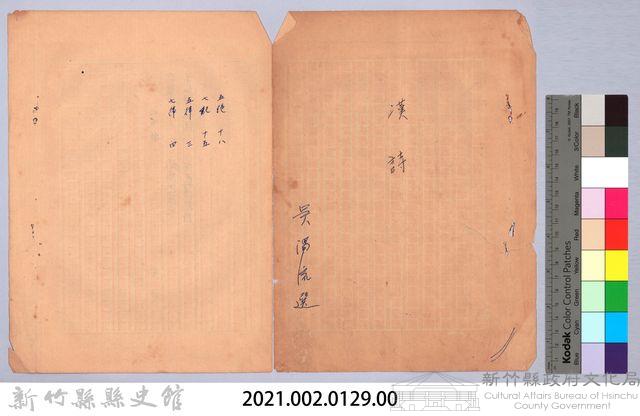 漢詩
吳濁流選
五絕 十八
七絕 十五
五律 三
七律 四
Kodak Color Control Patches
Blue
Cyan
Green
Yellow
Red
Magenta
White
3/Color
Black
新竹縣縣史館
2021.002.0129.00
新竹縣政府文化局
Cultural Affairs Bureau of Hsinchu
County Government